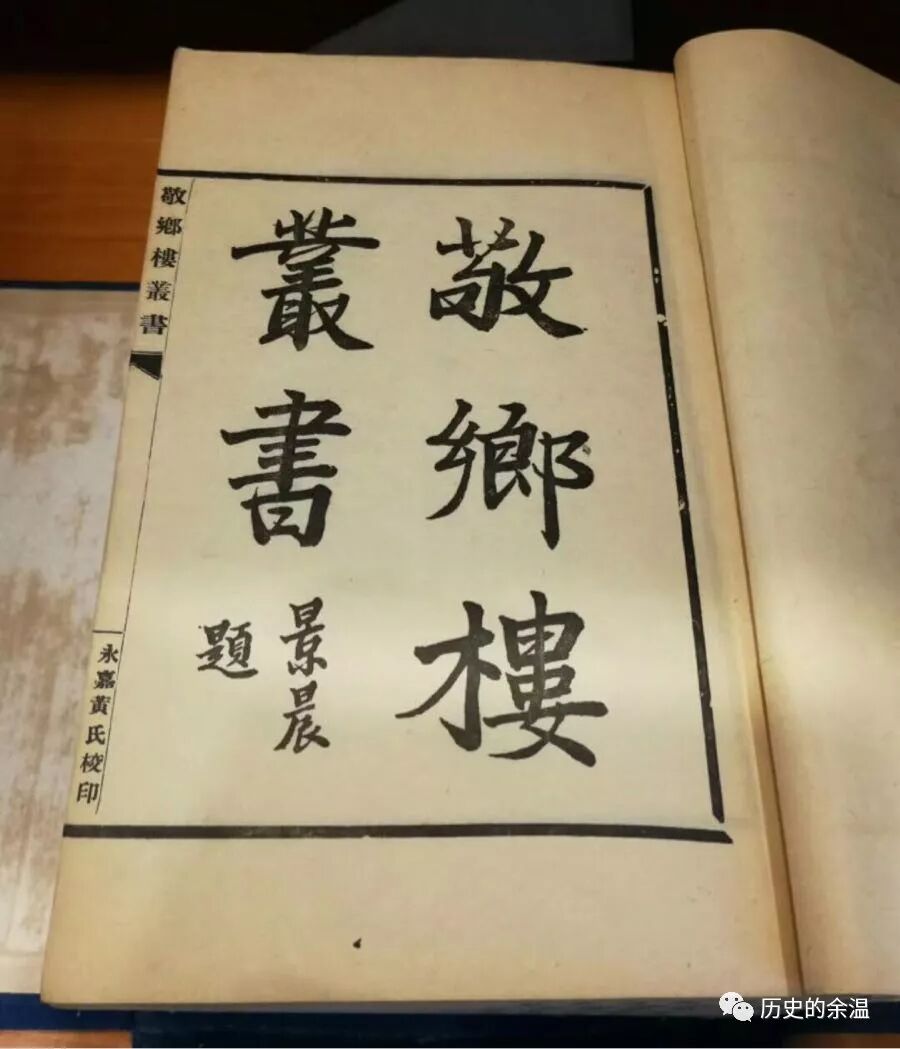 敬鄉樓
叢書
景晨
題
敬鄉樓叢書
永嘉黃氏校印
历史的余温